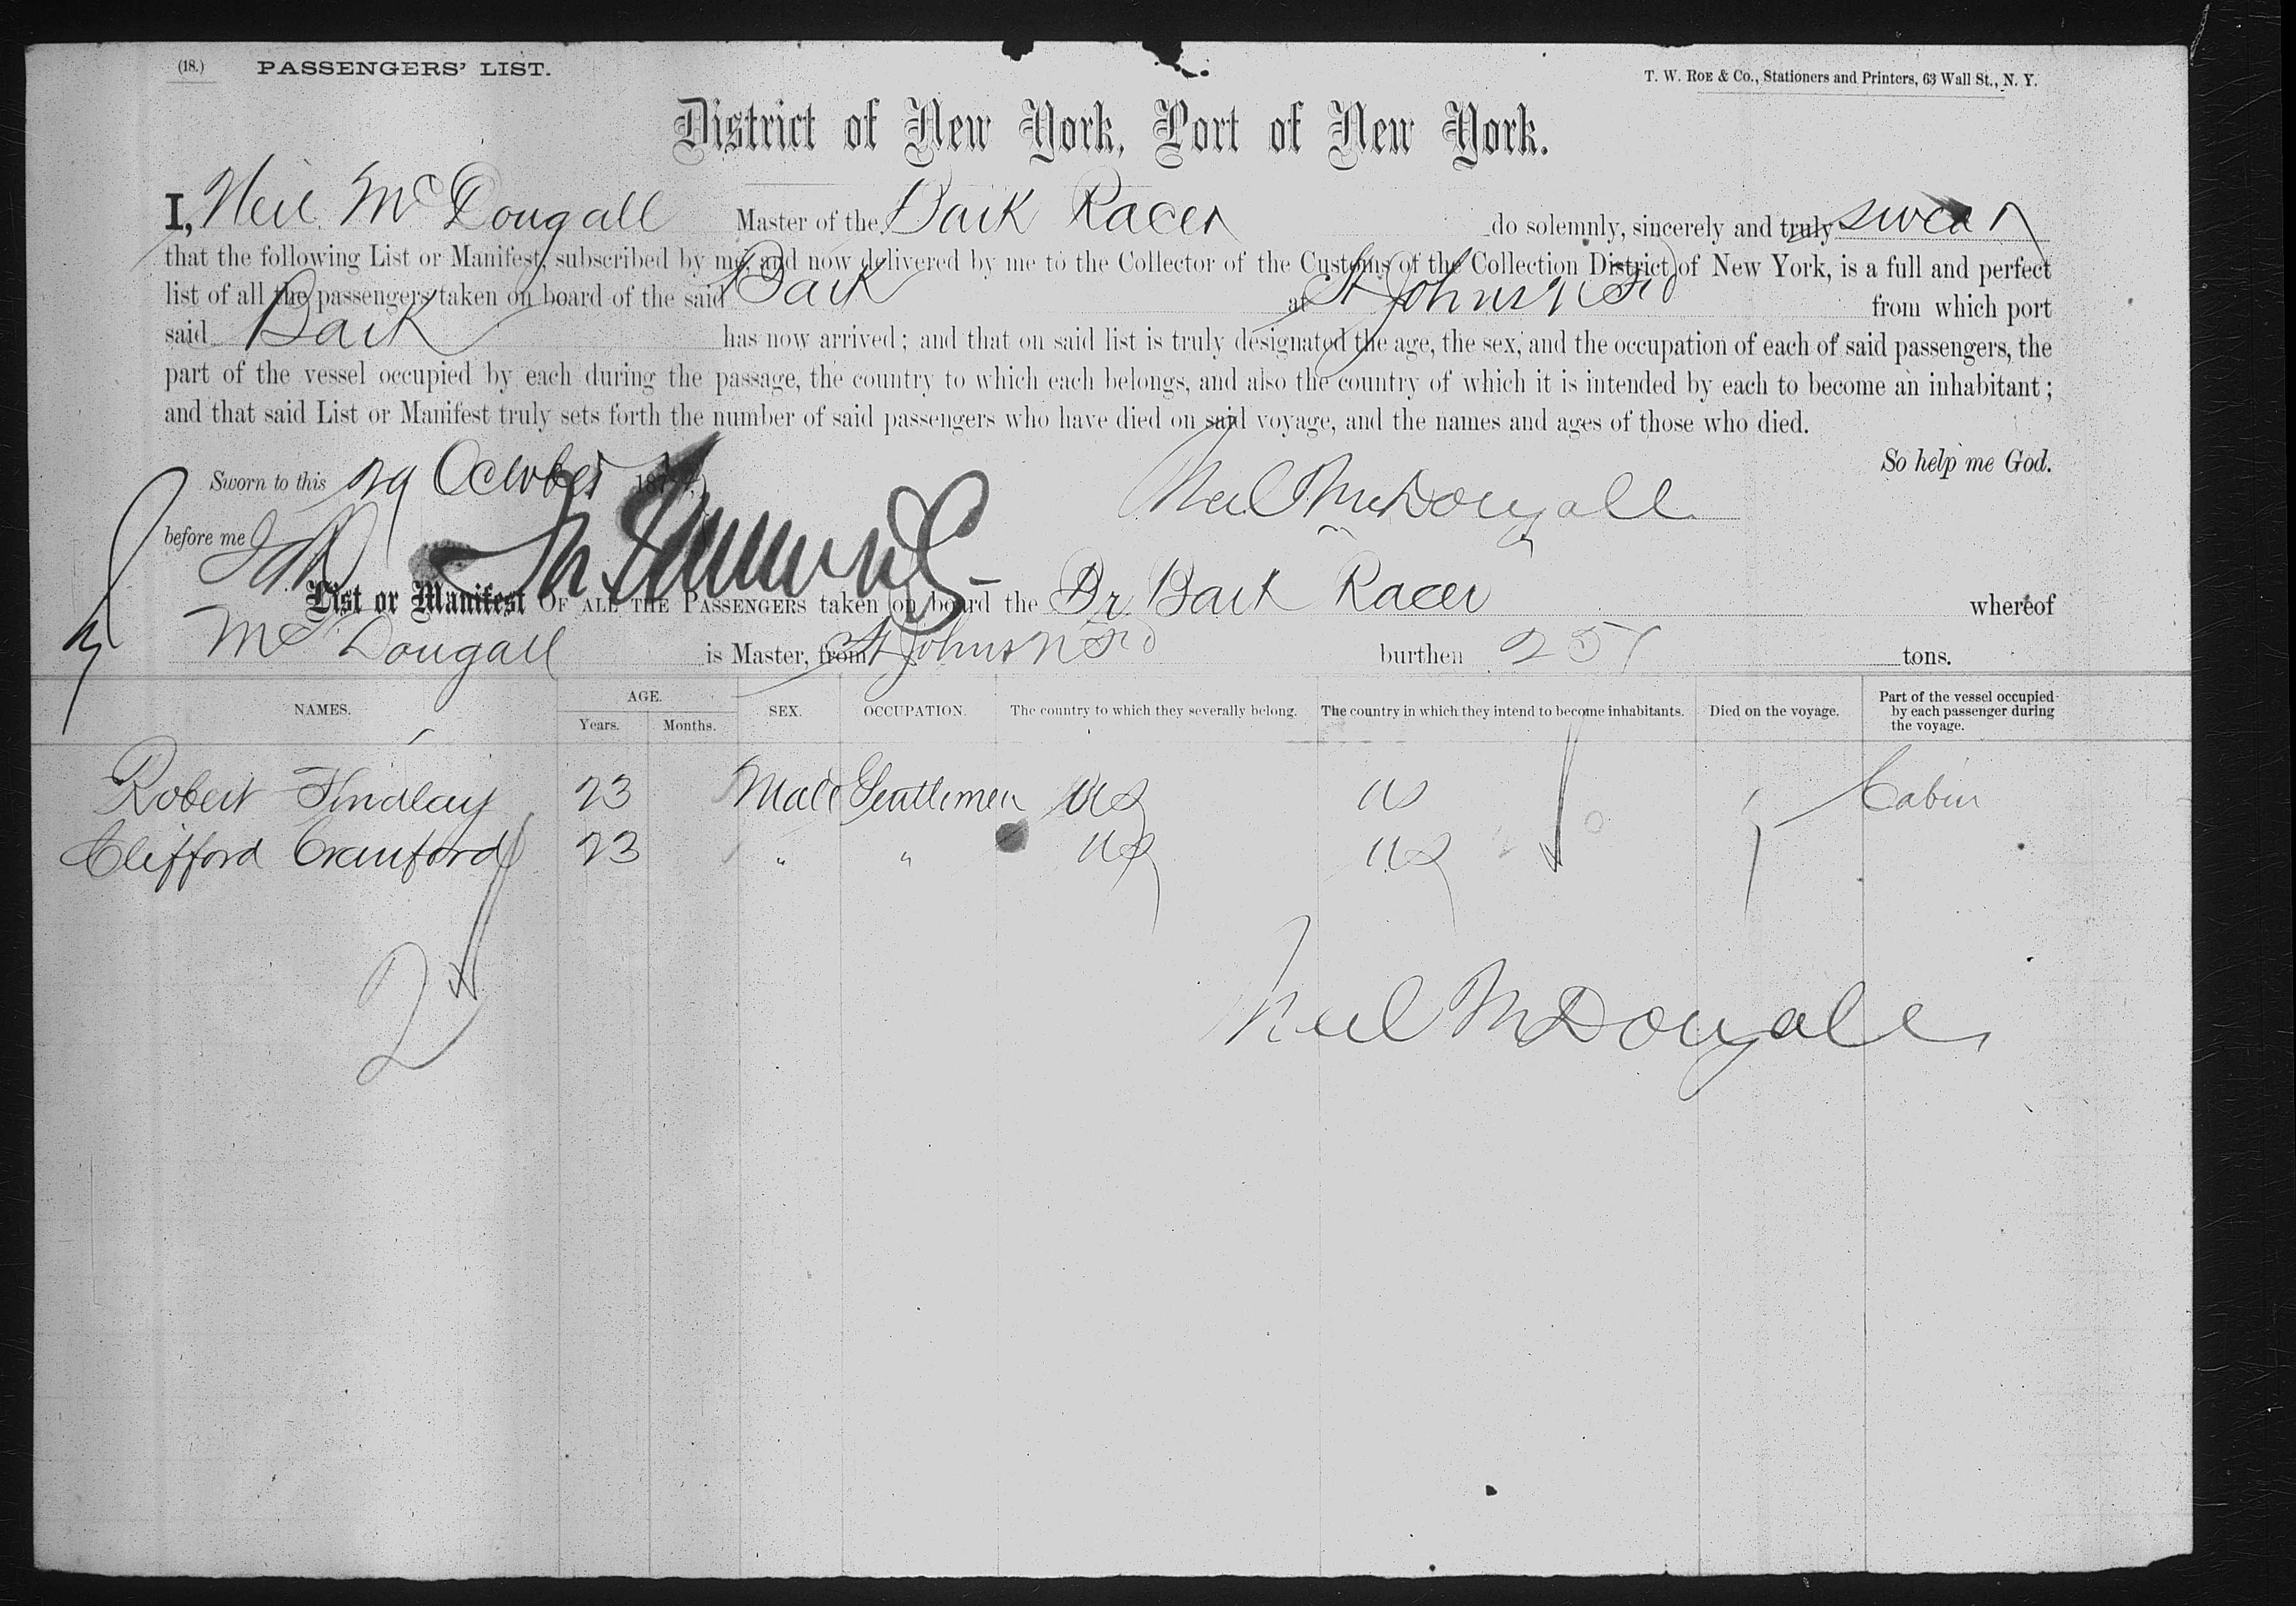 (18.) PASSENGERS' LIST. T. W. ROE & Co., Stationers and Printers, 63 Wall St., N. Y.
District of New York, Port of New York.
I, Neil McDougall Master of the Bark Racer do solemnly, sincerely and truly swear
that the following List or Manifest, subscribed by me, and now delivered by me to the Collector of the Customs of the Collection District of New York, is a full and perfect
list of all the passengers taken on board of the said Bark at St Johns NFd from which port
said Bark has now arrived; and that on said list is truly designated the age, the sex, and the occupation of each of said passengers, the
part of the vessel occupied by each during the passage, the country to which each belongs, and also the country of which it is intended by each to become an inhabitant;
and that said List or Manifest truly sets forth the number of said passengers who have died on said voyage, and the names and ages of those who died.
So help me God.
Sworn to this 29 October 187
Neil McDougall
before me
List or Manifest OF ALL THE PASSENGERS taken on board the Br Bark Racer whereof
McDougall is Master, from St Johns NFd burthen 257 tons.
NAMES. AGE. Years. Months. SEX. OCCUPATION. The country to which they severally belong. The country in which they intend to become inhabitants. Died on the voyage. Part of the vessel occupied by each passenger during the voyage.
Robert Findlay 23 Male Gentlemen US US Cabin
Clifford Cranford 23 " " US US
2
Neil McDougall